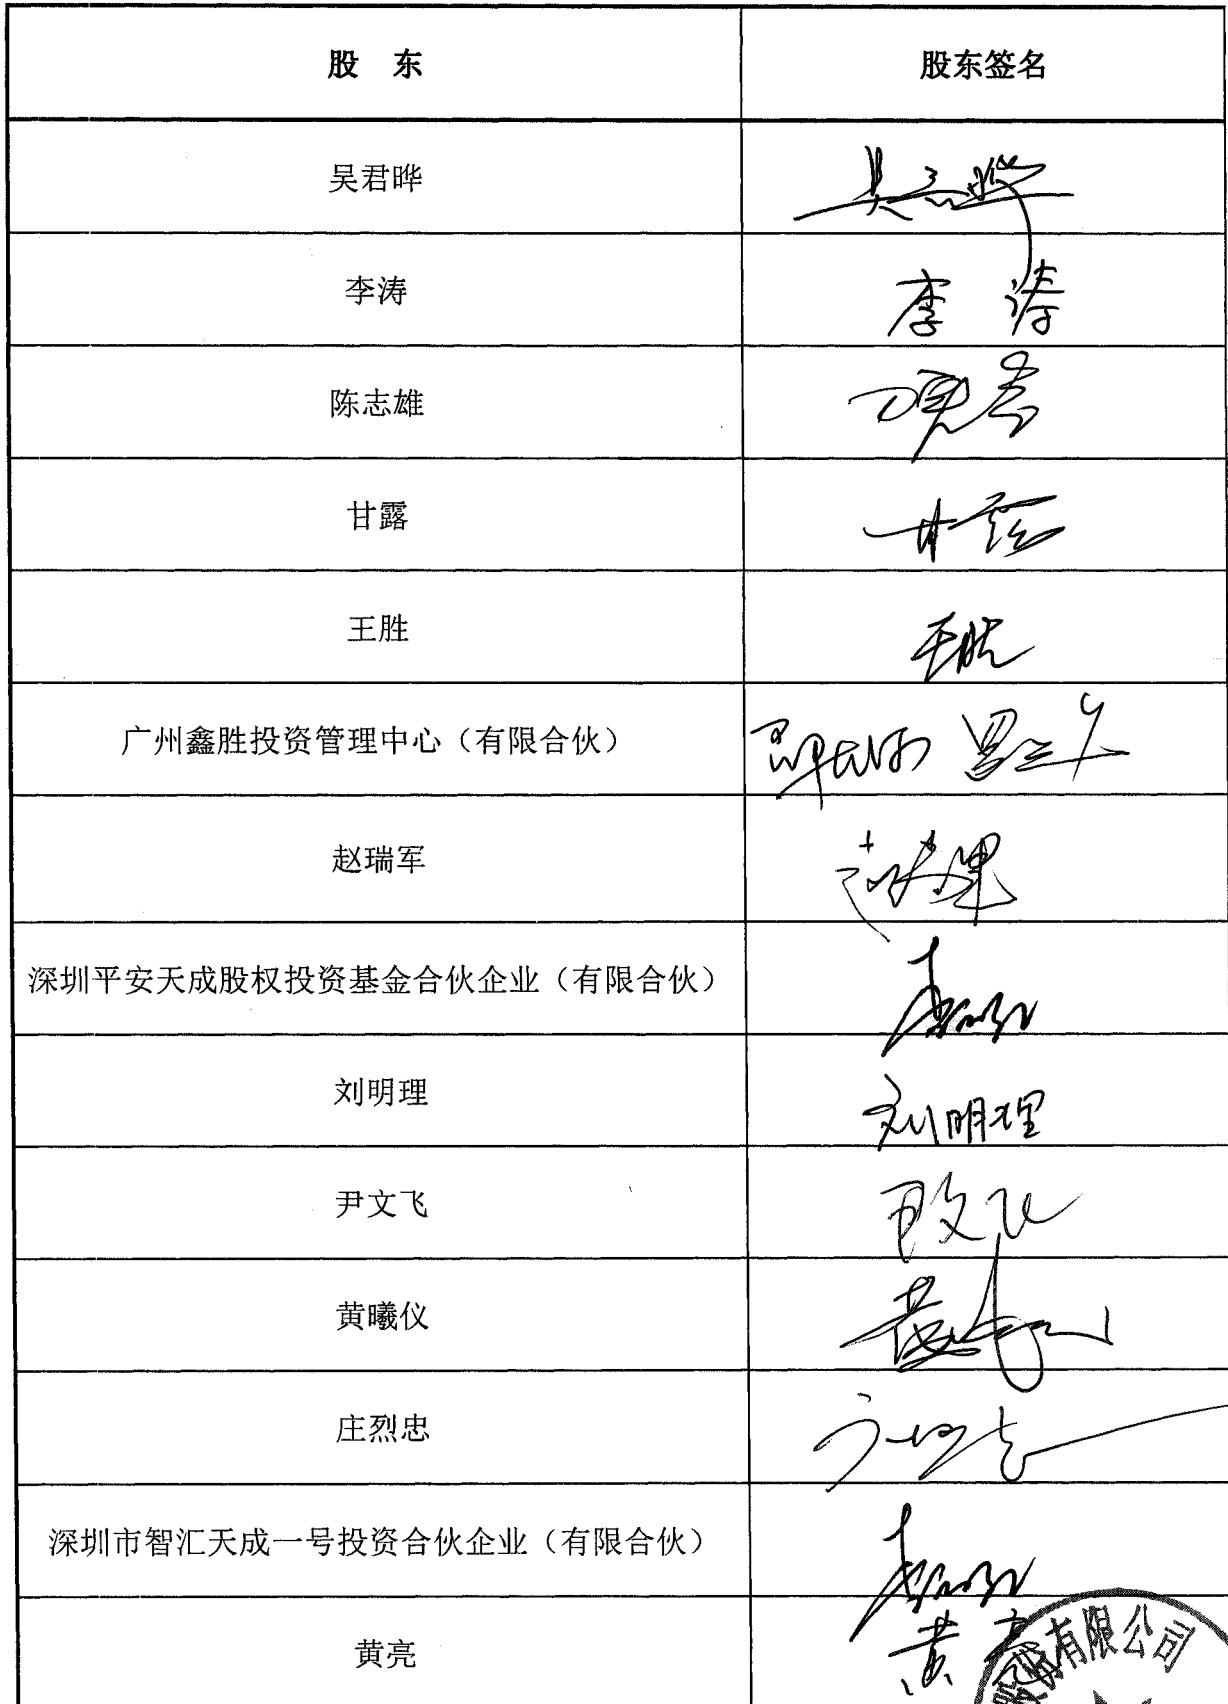 股 东 股东签名
吴君晔 吴君晔
李涛 李涛
陈志雄
甘露 甘露
王胜 王胜
广州鑫胜投资管理中心（有限合伙）
赵瑞军
深圳平安天成股权投资基金合伙企业（有限合伙）
刘明理 刘明理
尹文飞 尹文飞
黄曦仪
庄烈忠
深圳市智汇天成一号投资合伙企业（有限合伙）
黄亮 黄亮
股份有限公司